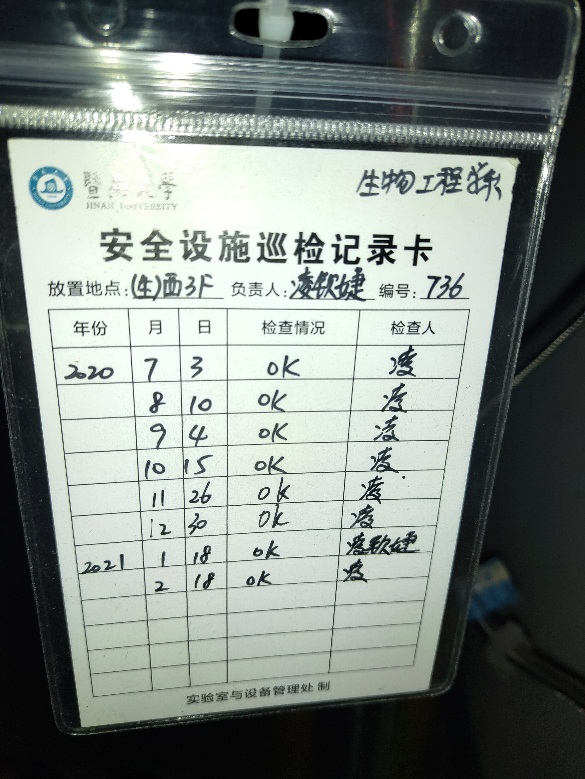 暨南大学
JINAN UNIVERSITY
生物工程学系
安全设施巡检记录卡
放置地点:(生)西3F 负责人:凌钦婕 编号:736
年份 月 日 检查情况 检查人
2020 7 3 OK 凌
8 10 OK 凌
9 4 OK 凌
10 15 OK 凌
11 26 OK 凌
12 30 OK 凌
2021 1 18 OK 凌钦婕
2 18 OK 凌
实验室与设备管理处 制